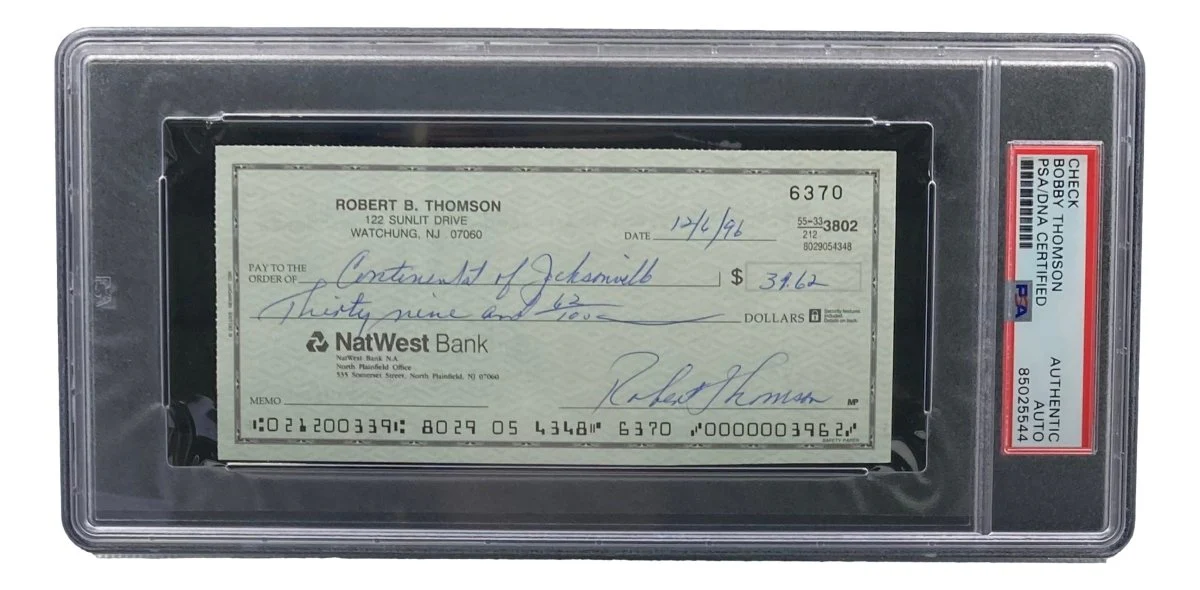 ROBERT B. THOMSON
122 SUNLIT DRIVE
WATCHUNG, NJ 07060
6370
DATE 12/6/96
55-33 3802
212
8029054348
PAY TO THE
ORDER OF Continental of Jacksonville $ 39.62
Thirty nine and 62/100 DOLLARS
Security features
included.
Details on back.
NatWest Bank
NatWest Bank N.A.
North Plainfield Office
535 Somerset Street, North Plainfield, NJ 07060
MEMO
Robert Thomson MP
⑆021200339⑆ 8029 05 4348⑈ 6370 ⑈0000003962⑈
SAFETY PAPER
CHECK
BOBBY THOMSON
PSA/DNA CERTIFIED
PSA
AUTHENTIC
AUTO
85025544